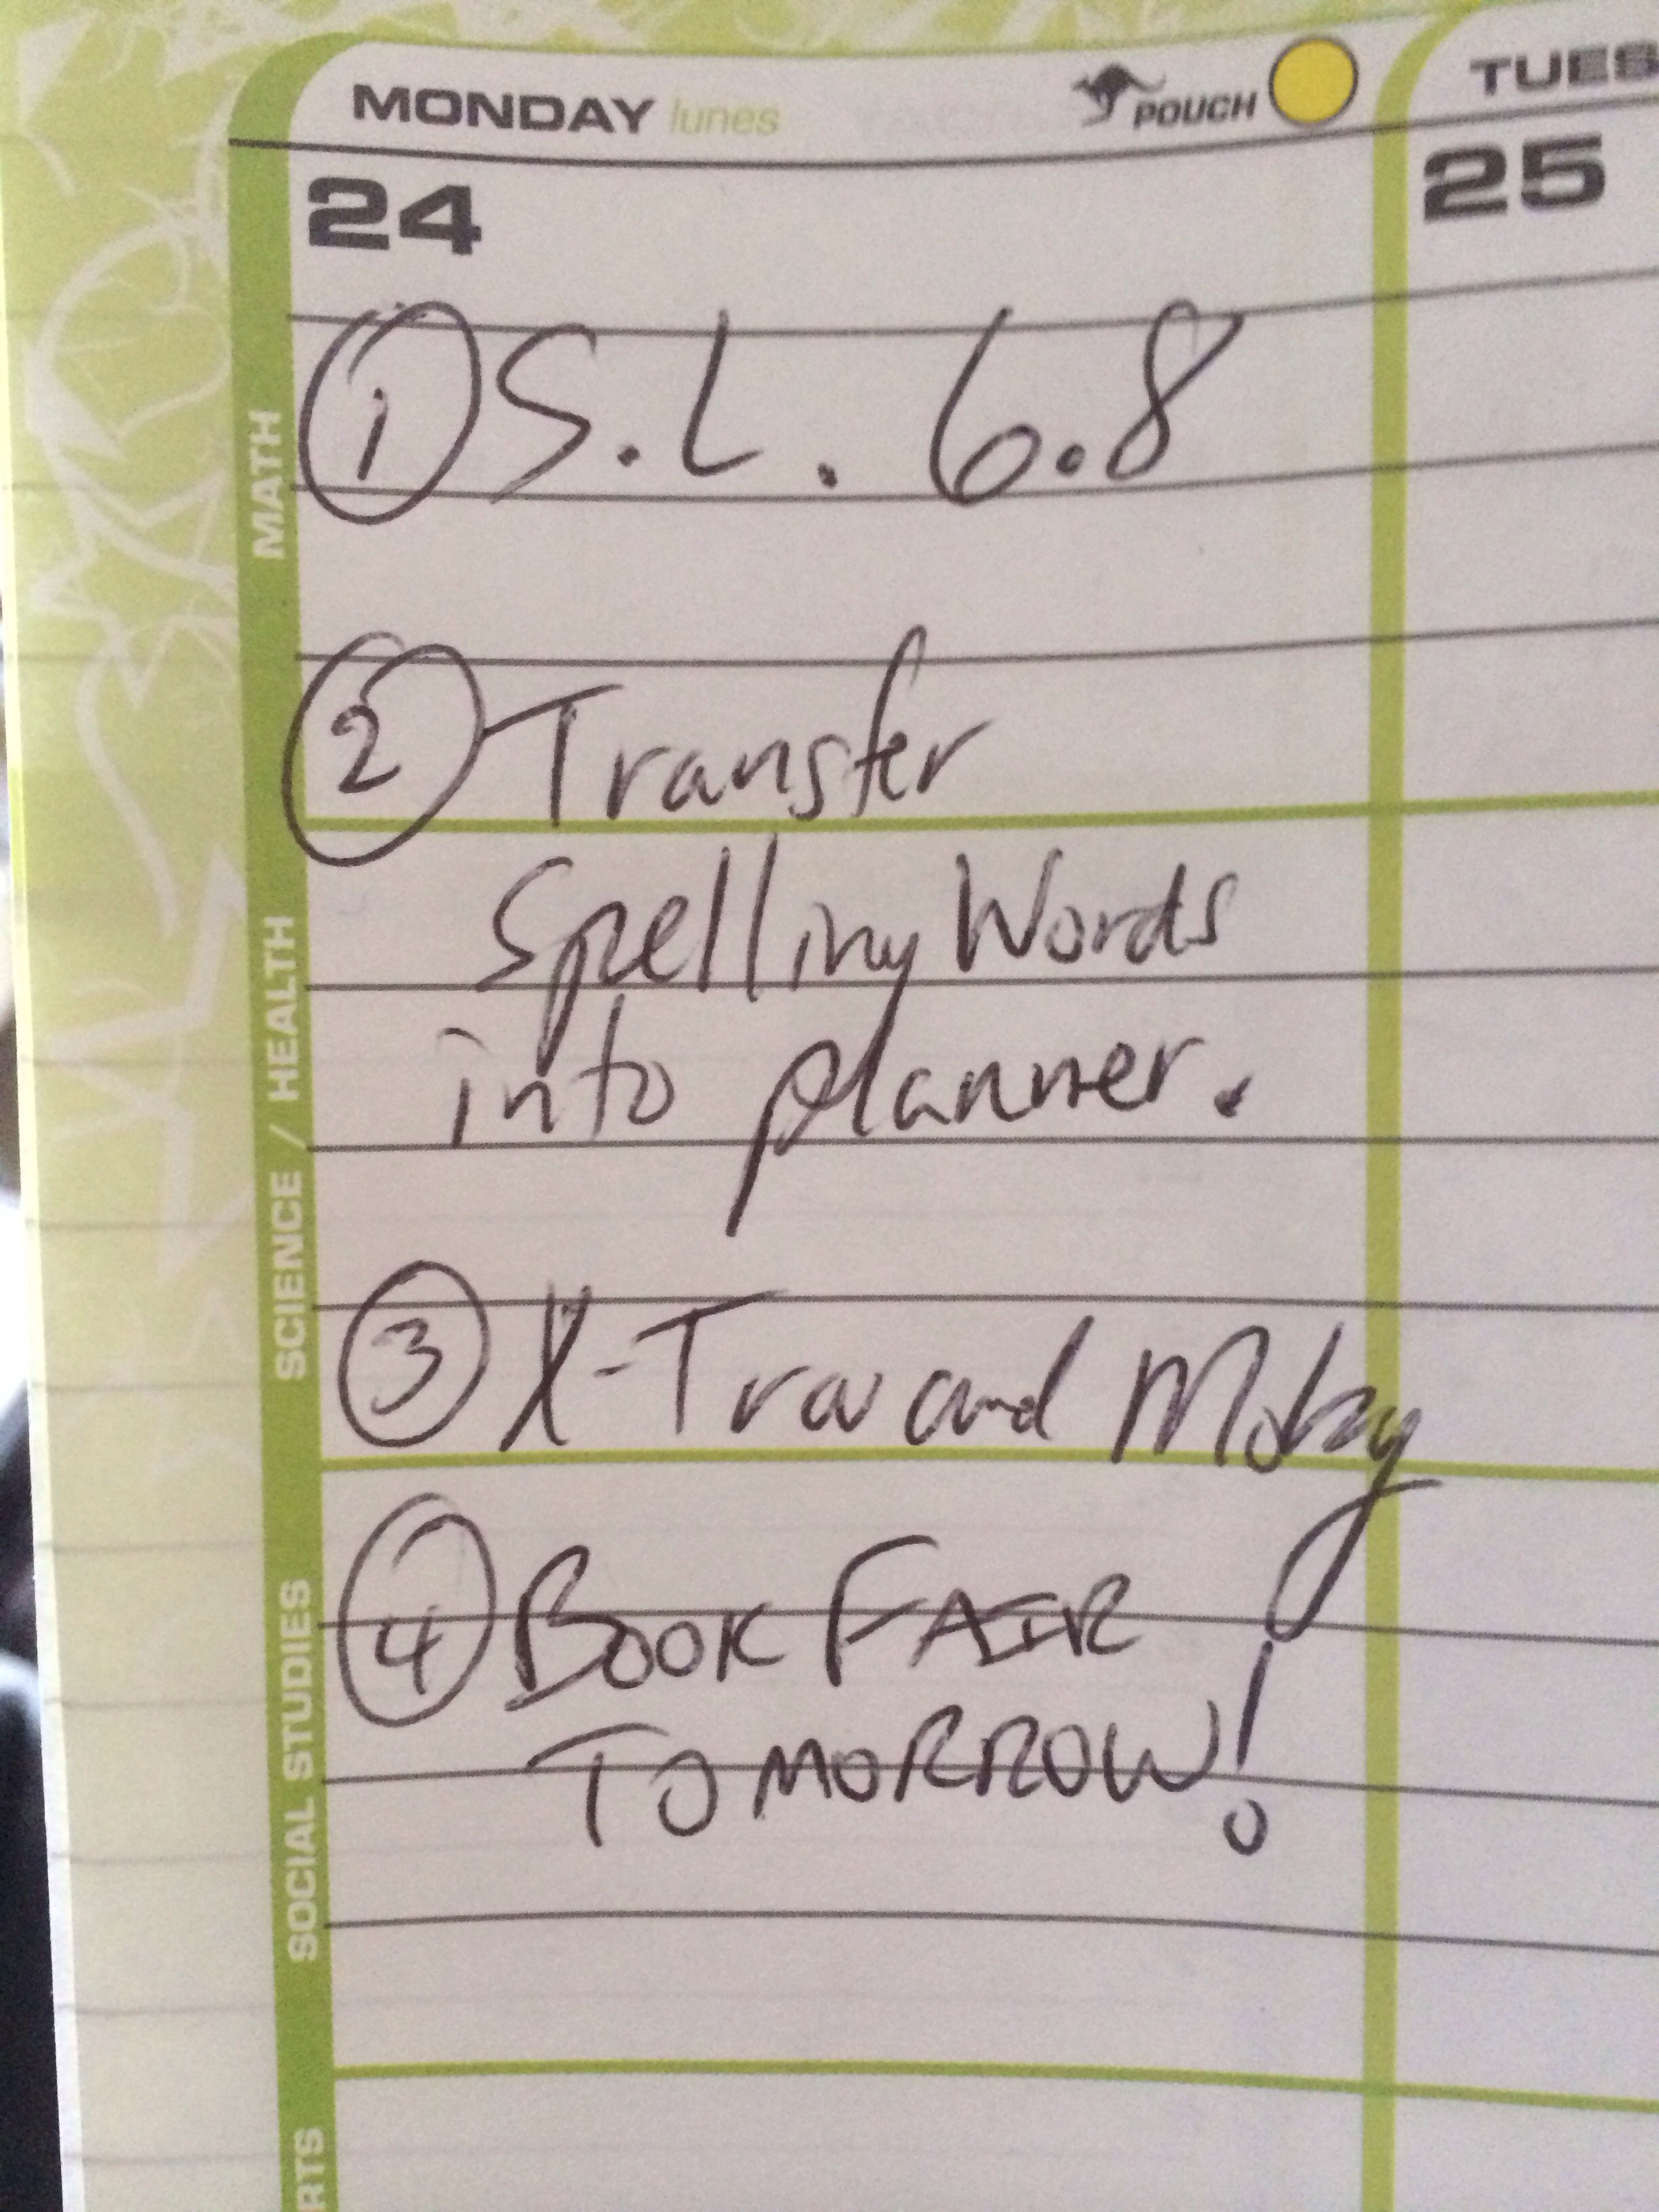 MONDAY lunes POUCH TUES
24 25
① S.L. 6.8
② Transfer
Spelling Words
into planner.
③ X-Tra and Moby
④ BOOK FAIR
TOMORROW!
MATH
SCIENCE / HEALTH
SOCIAL STUDIES
RTS